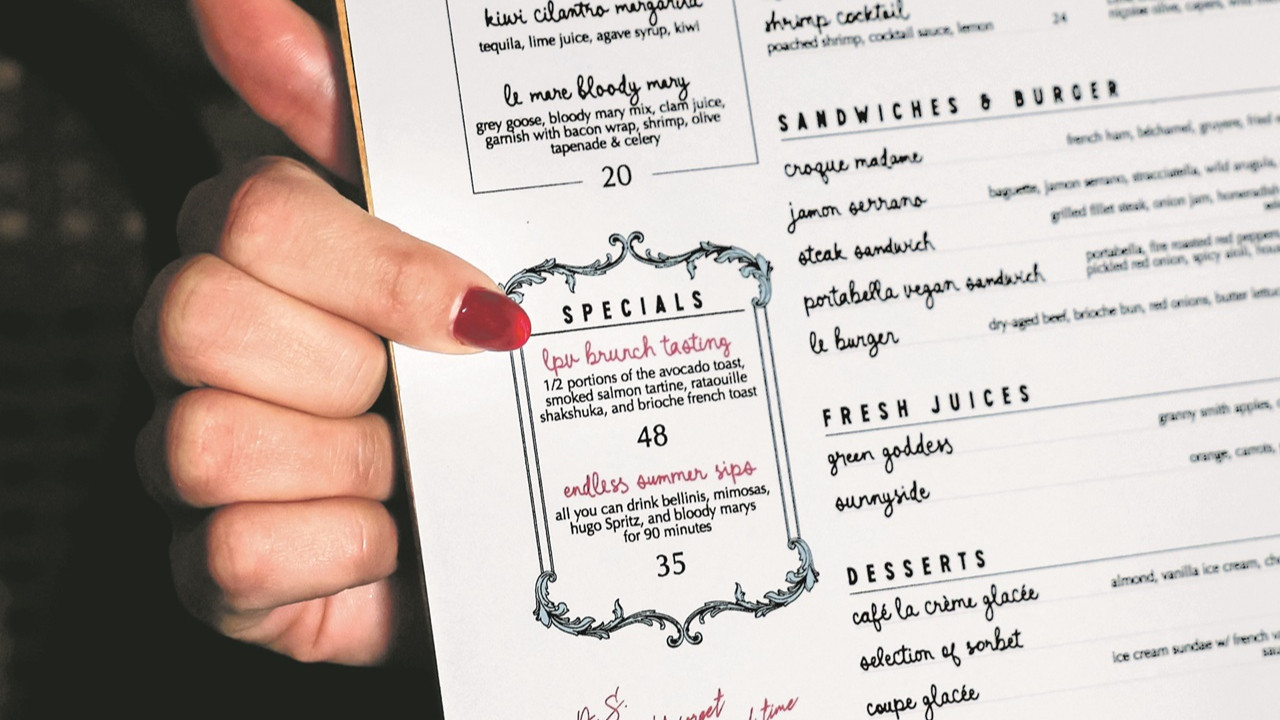 kiwi cilantro margarita
tequila, lime juice, agave syrup, kiwi
le mare bloody mary
grey goose, bloody mary mix, clam juice,
garnish with bacon wrap, shrimp, olive
tapenade & celery
20
SPECIALS
lpv brunch tasting
1/2 portions of the avocado toast,
smoked salmon tartine, rataouille
shakshuka, and brioche french toast
48
endless summer sips
all you can drink bellinis, mimosas,
hugo Spritz, and bloody marys
for 90 minutes
35
P.S.
time
shrimp cocktail
poached shrimp, cocktail sauce, lemon 24
olive, capers,
SANDWICHES & BURGER
french ham, béchamel, gruyere, fried
croque madame
baguette, jamon serrano, stracciatella, wild arugula,
jamon serrano
grilled fillet steak, onion jam, horseradish
steak sandwich
portabella, fire roasted red peppers,
pickled red onion, spicy aioli,
portabella vegan sandwich
dry-aged beef, brioche bun, red onions, butter
le burger
FRESH JUICES
granny smith apples,
green goddess
orange, carrots,
sunnyside
DESSERTS
almond, vanilla ice cream,
café la crème glacée
selection of sorbet
ice cream sundae w/ french
coupe glacée